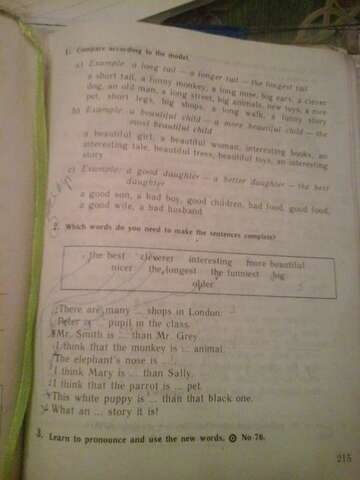 1. Compare according to the model.
a) Example: a long tail — a longer tail — the longest tail
a short tail, a funny monkey, a long nose, big ears, a clever
dog, an old man, a long street, big animals, new toys, a nice
pet, short legs, big shops, a long walk, a funny story
b) Example: a beautiful child — a more beautiful child — the
most beautiful child
a beautiful girl, a beautiful woman, interesting books, an
interesting tale, beautiful trees, beautiful toys, an interesting
story
c) Example: a good daughter — a better daughter — the best
daughter
a good son, a bad boy, good children, bad food, good food,
a good wife, a bad husband
2. Which words do you need to make the sentences complete?
the best cleverer interesting more beautiful
nicer the longest the funniest big
older
There are many ... shops in London.
Peter is ... pupil in the class.
Mr. Smith is ... than Mr. Grey
I think that the monkey is ... animal.
The elephant's nose is ...
I think Mary is ... than Sally.
I think that the parrot is ... pet.
This white puppy is ... than that black one.
What an ... story it is!
3. Learn to pronounce and use the new words. No 76.
215